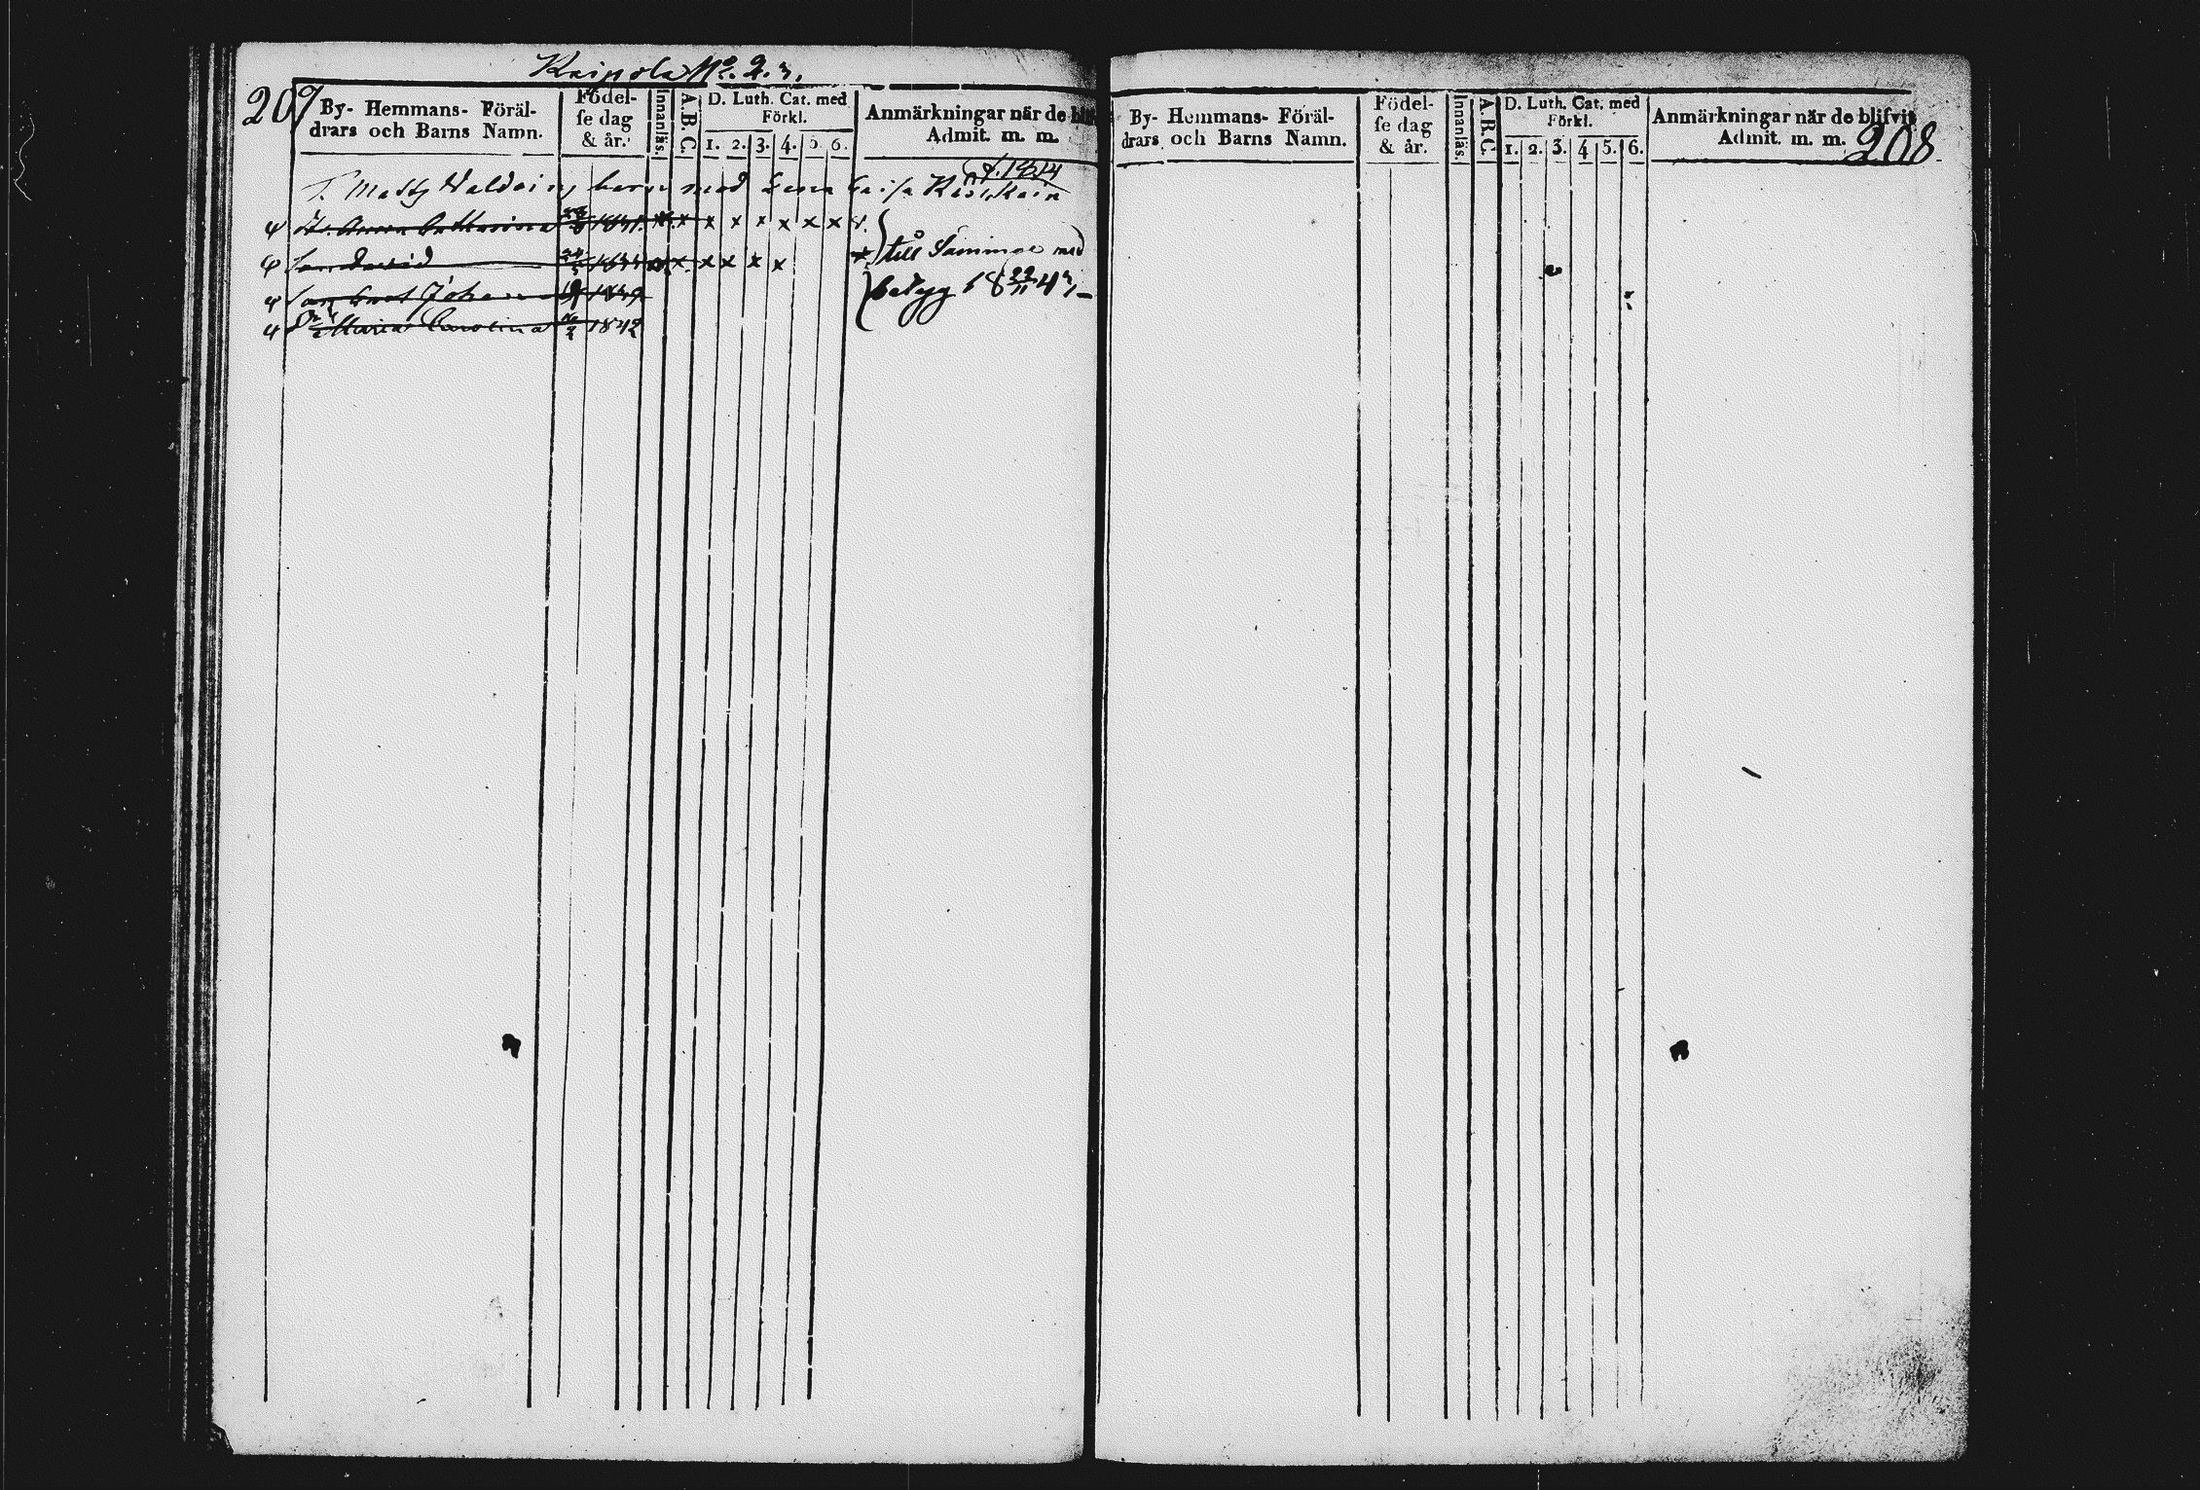 Kaipola No. 2. 3.
207
By- Hemmans- Föräl-
drars och Barns Namn.
Födel-
se dag
& år.
Innanläs.
A.B.C.
D. Luth. Cat. med
Förkl.
1. 2. 3. 4. 5. 6.
Anmärkningar når de blif
Admit. m. m.
T. Matts Waldein barn med Lena Caisa
D. Anna Catharina 1831. x x x x x x x x
Son David 1833 x x x x x
till Säminge med
Son Johan 1839
betyg 18 22/11 43
Dr Maria Carolina 1842
By- Hemmans- Föräl-
drars och Barns Namn.
Födel-
se dag
& år.
Innanläs.
A.B.C.
D. Luth. Cat. med
Förkl.
1. 2. 3. 4 5. 6.
Anmärkningar når de blifvit
Admit. m. m.
208